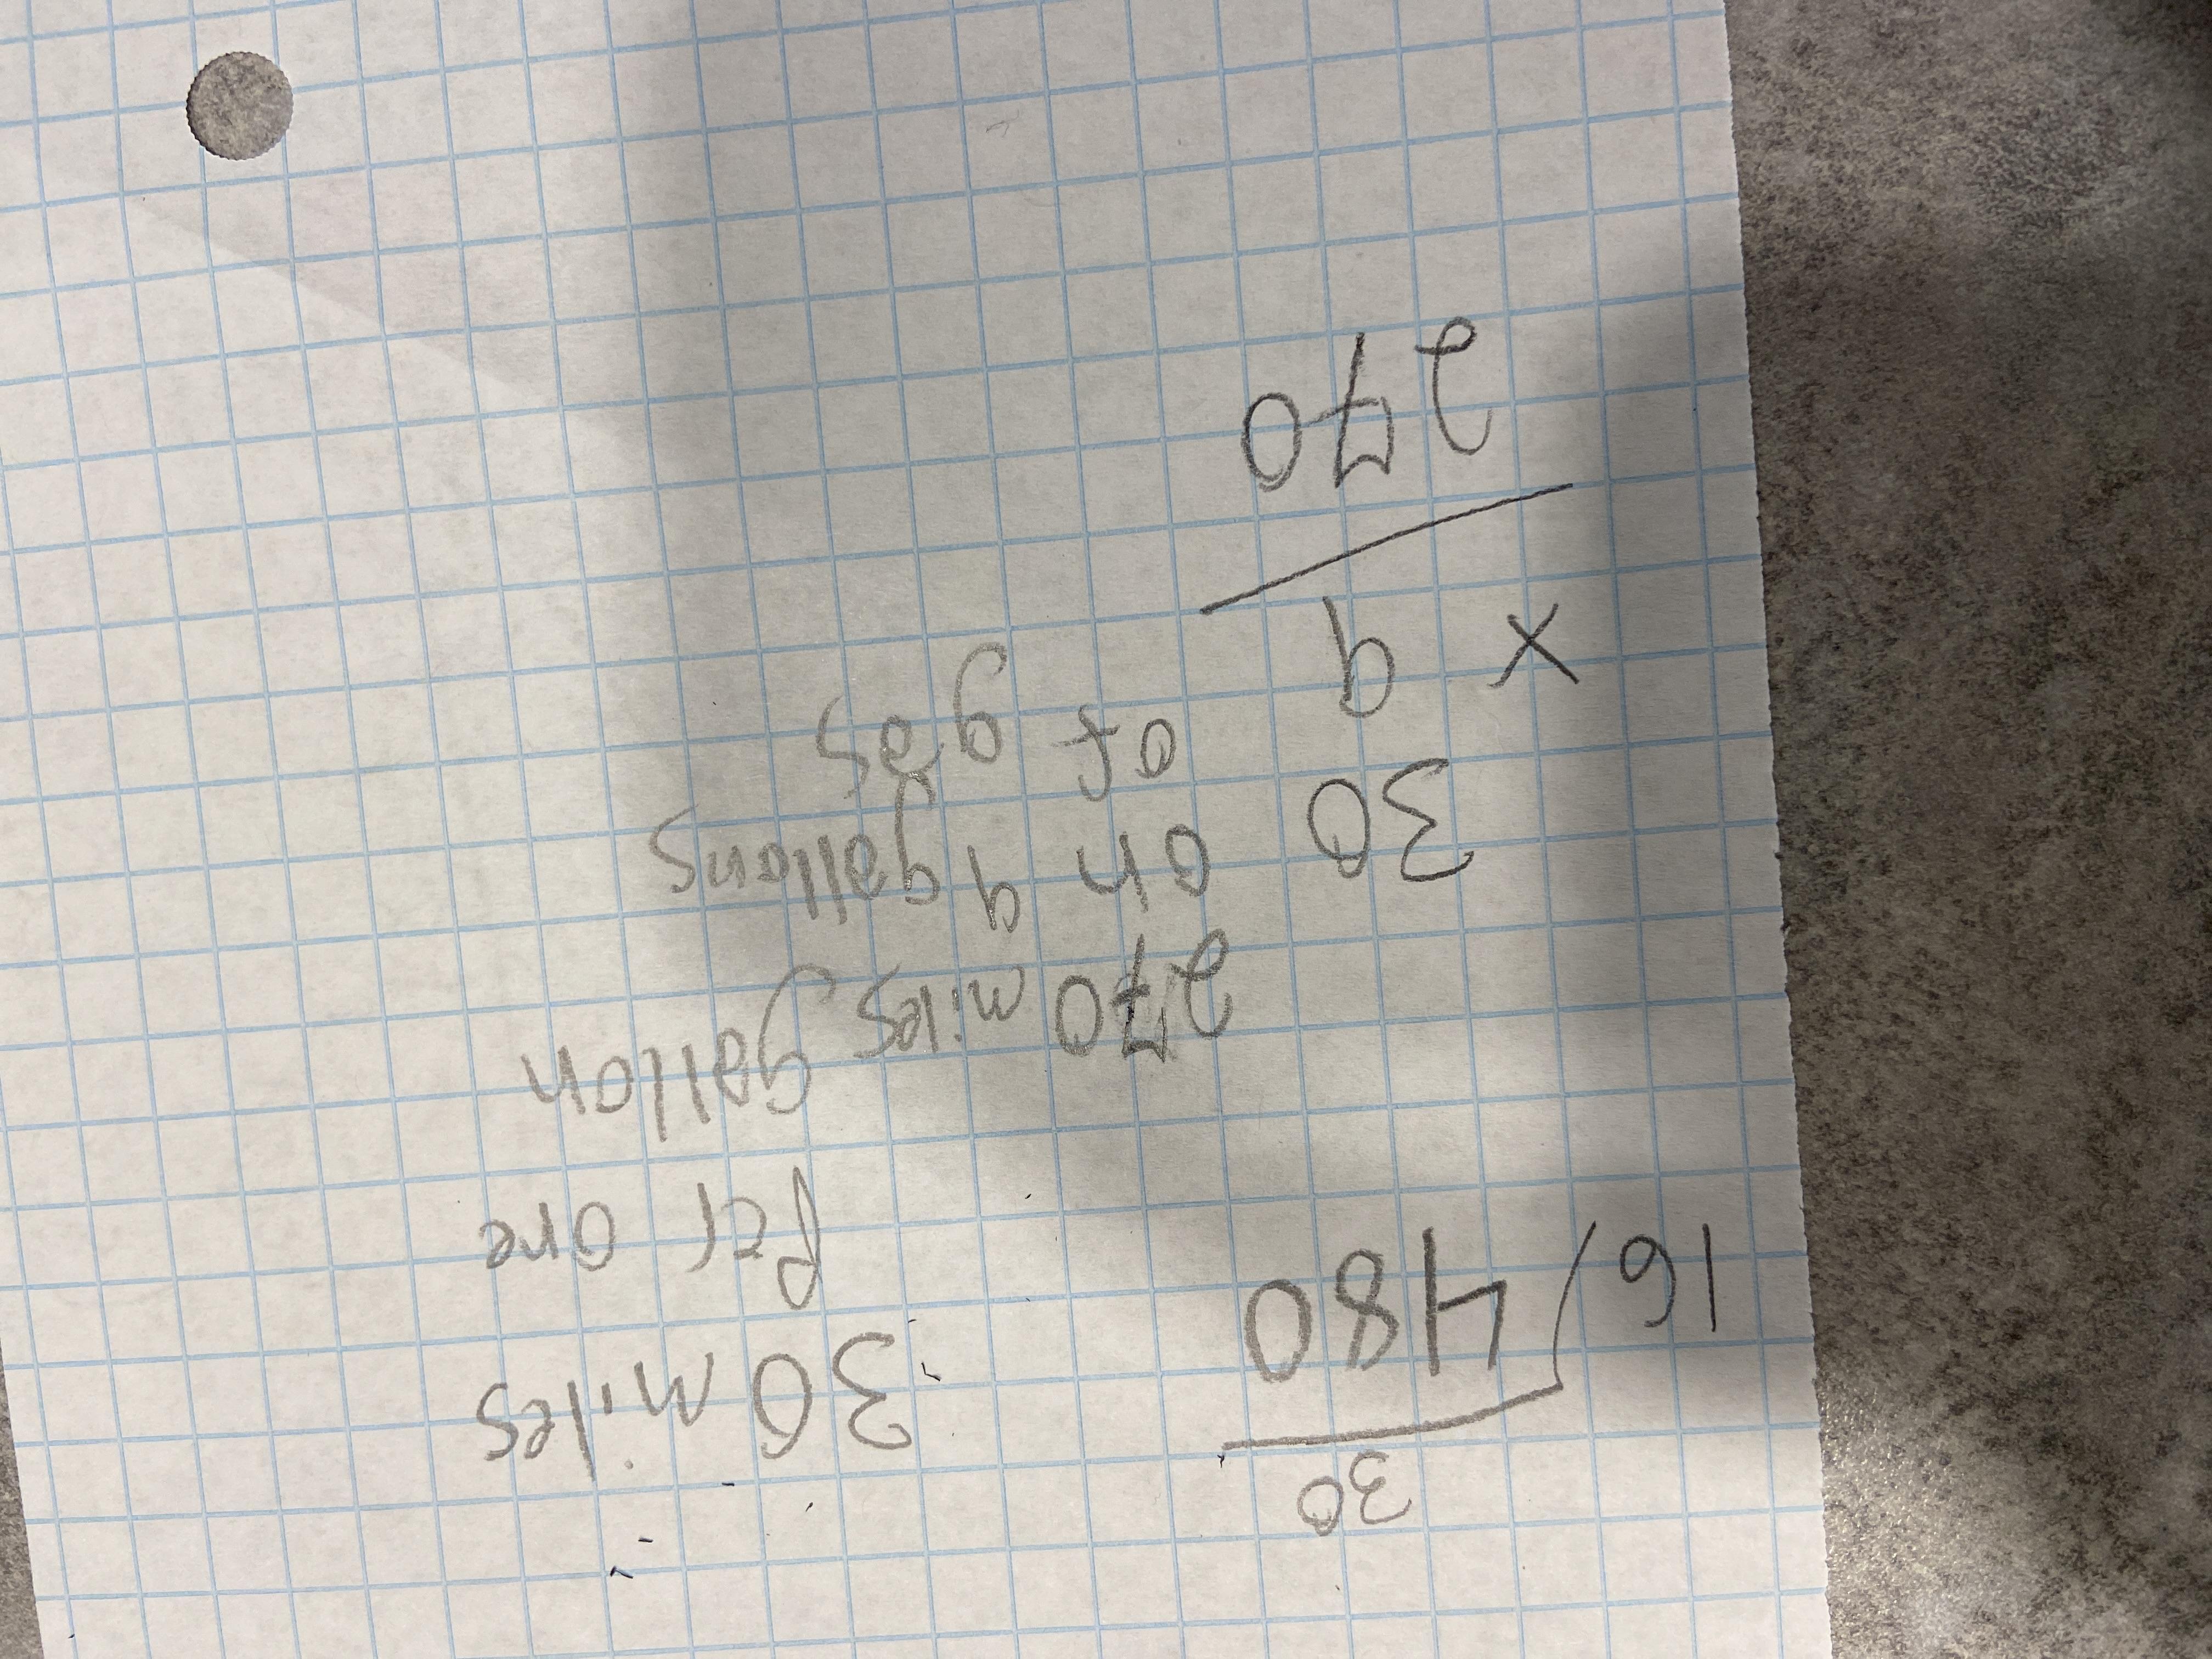 30
16)480
30 miles
per one
gallon
270 miles
on 9 gallons
of gas
30
x 9
270